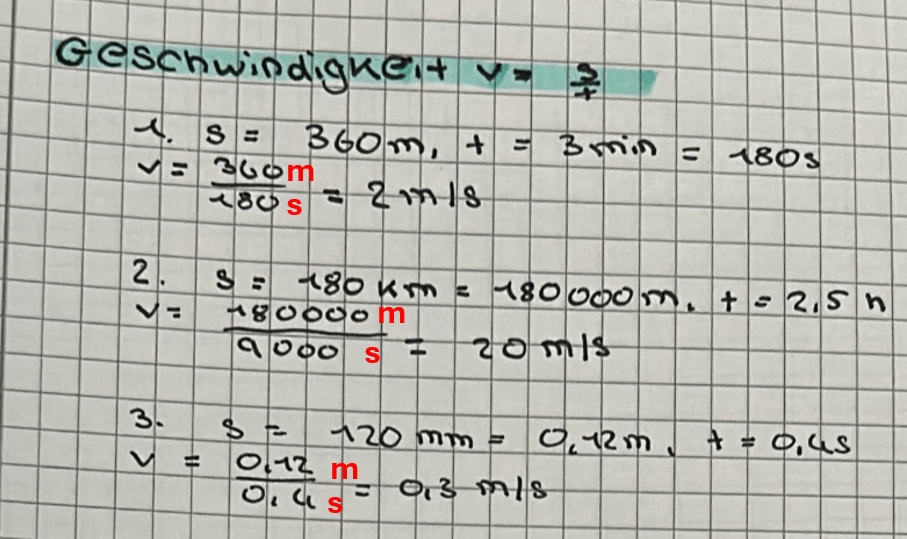 Geschwindigkeit v = s/t
1. s = 360m, t = 3min = 180s
v = 360m/180s = 2m/s
2. s = 180km = 180000m, t = 2,5 h
v = 180000m/9000s = 20m/s
3. s = 120mm = 0,12m, t = 0,4s
v = 0,12m/0,4s = 0,3 m/s